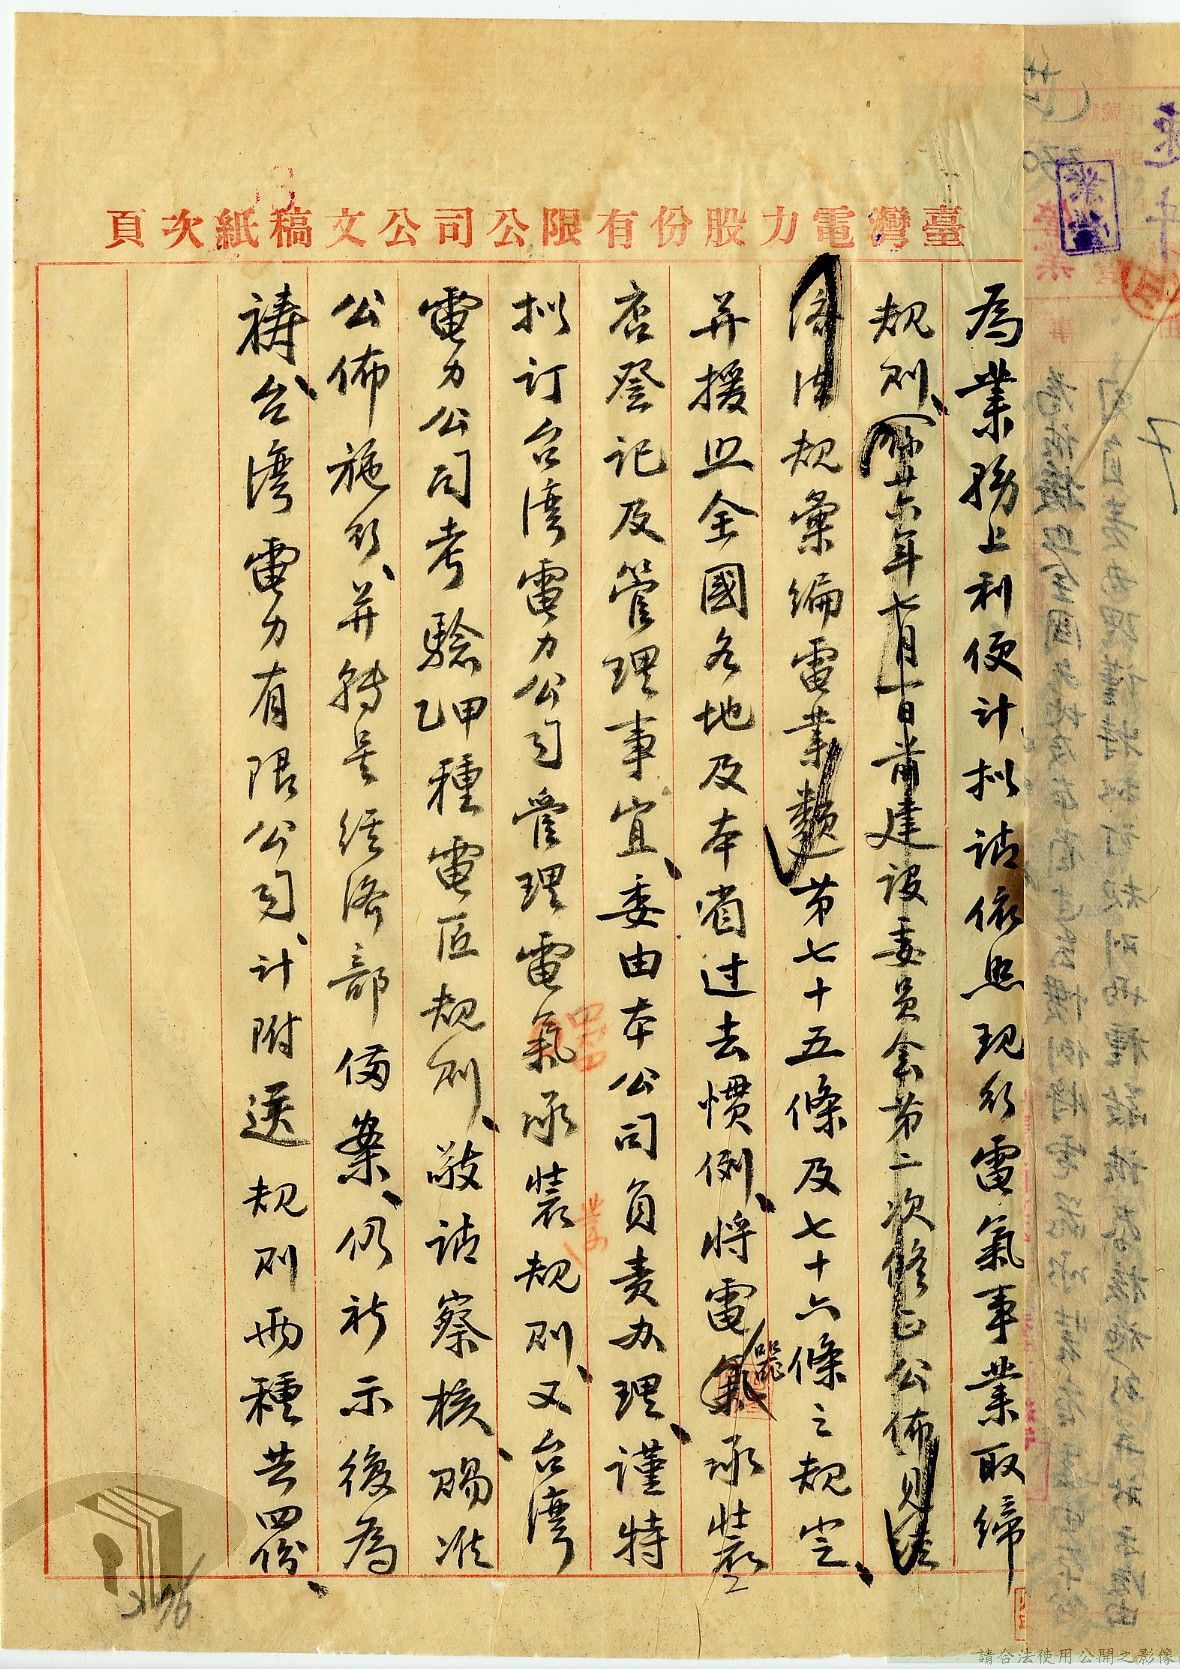 臺灣電力股份有限公司公文稿紙次頁
為業務上利便計擬請依照現行電氣事業取締
規則、(廿六年七月一日前建設委員會第二次修正公佈見法
濟法規彙編電業類)第七十五條及七十六條之規定、
并援照全國各地及本省过去慣例、將電氣器承裝
店登記及管理事宜、委由本公司負責办理、謹特
拟訂台湾電力公司管理電氣承裝規則、又台湾
電力公司考驗甲乙種電匠規則、敬請察核、賜准
公佈施行、并轉呈經濟部備案、仍祈示後為
禱、台湾電力有限公司、計附送規則兩種共四份、
業營
請合法使用公開之影像